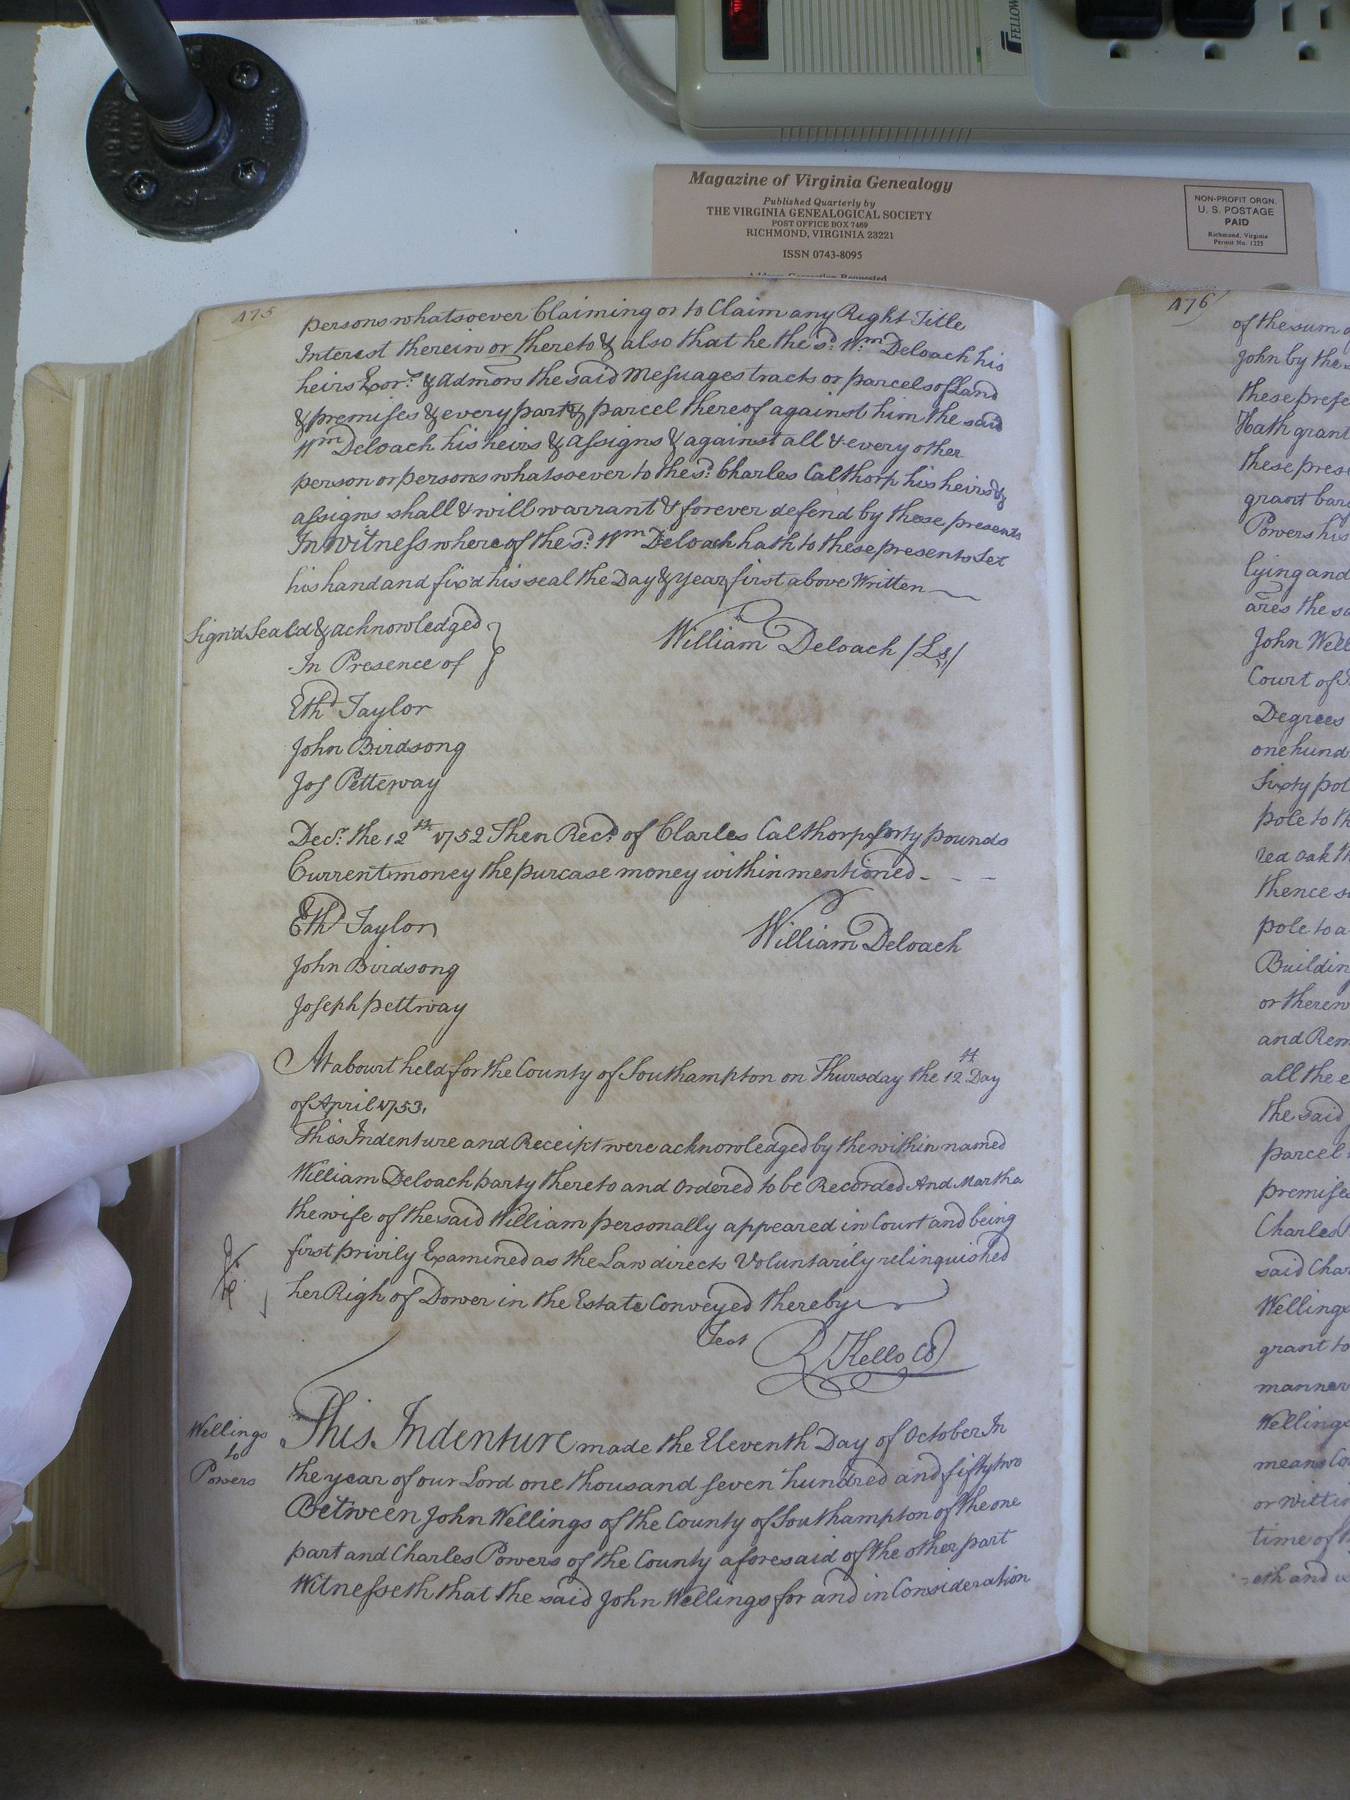 FELLOW
Magazine of Virginia Genealogy
Published Quarterly by
THE VIRGINIA GENEALOGICAL SOCIETY
POST OFFICE BOX 7469
RICHMOND, VIRGINIA 23221
ISSN 0743-8095
Address Correction Requested
NON-PROFIT ORGN.
U. S. POSTAGE
PAID
Richmond, Virginia
Permit No. 1225
475
persons whatsoever Claiming or to Claim any Right Title
Interest therein or thereto & also that he the sd. Wm Deloach his
heirs Exors. & Admors the said Mesuages tracts or parcels of Land
& premises & every part & parcel thereof against him the said
Wm Deloach his heirs & assigns & against all & every other
person or persons whatsoever to the sd. Charles Calthorp his heirs &
assigns shall & will warrant & forever defend by these presents
In Witness whereof the sd. Wm Deloach hath to these presents Set
his hand and fix'd his seal the Day & year first above Written
Sign'd Seal'd & acknowledged
In Presence of
William Deloach /Ls/
Ethd Taylor
John Birdsong
Jos Petteway
Decr. the 12th 1752 Then Recd. of Charles Calthorp forty pounds
Current money the purcase money within mentioned - - -
Ethd Taylor
William Deloach
John Birdsong
Joseph pettway
At a Court held for the County of Southampton on Thursday the 12th Day
of April 1753.
This Indenture and Receipt were acknowledged by the within named
William Deloach party thereto and Ordered to be Recorded And Martha
the wife of the said William personally appeared in Court and being
first privily Examined as the Law directs Voluntarily relinquished
her Righ of Dower in the Estate Conveyed thereby
Test R Kello Co
Wellings
to
Powers
This Indenture made the Eleventh Day of October In
the year of our Lord one thousand seven hundred and fifty two
Between John Wellings of the County of Southampton of the one
part and Charles Powers of the County aforesaid of the other part
Witnesseth that the said John Wellings for and in Consideration
476
of the sum
John by the
these prese
Hath grant
these prese
grant bar
Powers his
lying and
acres the sa
John Well
Court of
Degrees
one hund
Sixty pol
pole to th
red oak th
thence s
pole to a
Buildin
or therew
and Rem
all the e
the said
parcel
premise
Charles
said Char
Wellings
grant to
manner
Wellings
means
or Witti
time of
eth and